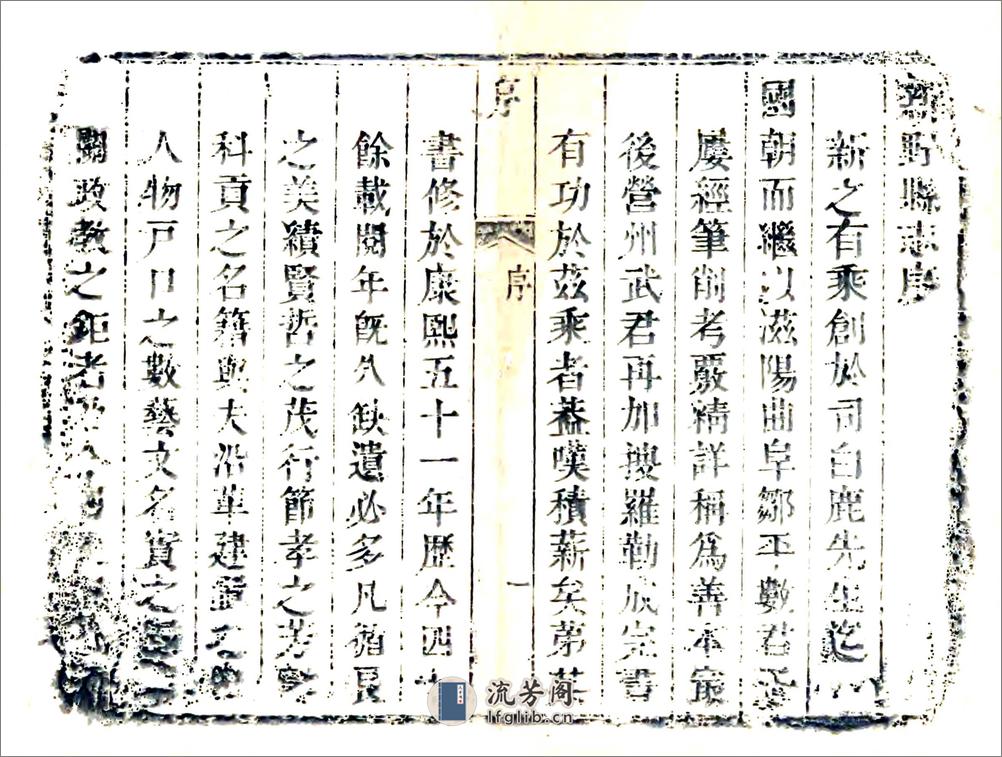 新野縣志序
新之有乘創於司白鹿先生迄
國朝而繼以滋陽曲阜鄒平數君子
屢經筆削考覈精詳稱爲善本最
後營州武君再加搜羅勒成完書
有功於茲乘者蓋嘆積薪矣第其
序
序
一
書修於康熙五十一年歷今四十
餘載閱年既久缺遺必多凡循良
之美績賢哲之茂行節孝之芳
科貢之名籍與夫沿革建置之
人物戸口之數藝文名實之
關政教之鉅者
流芳阁
lfglib.cn